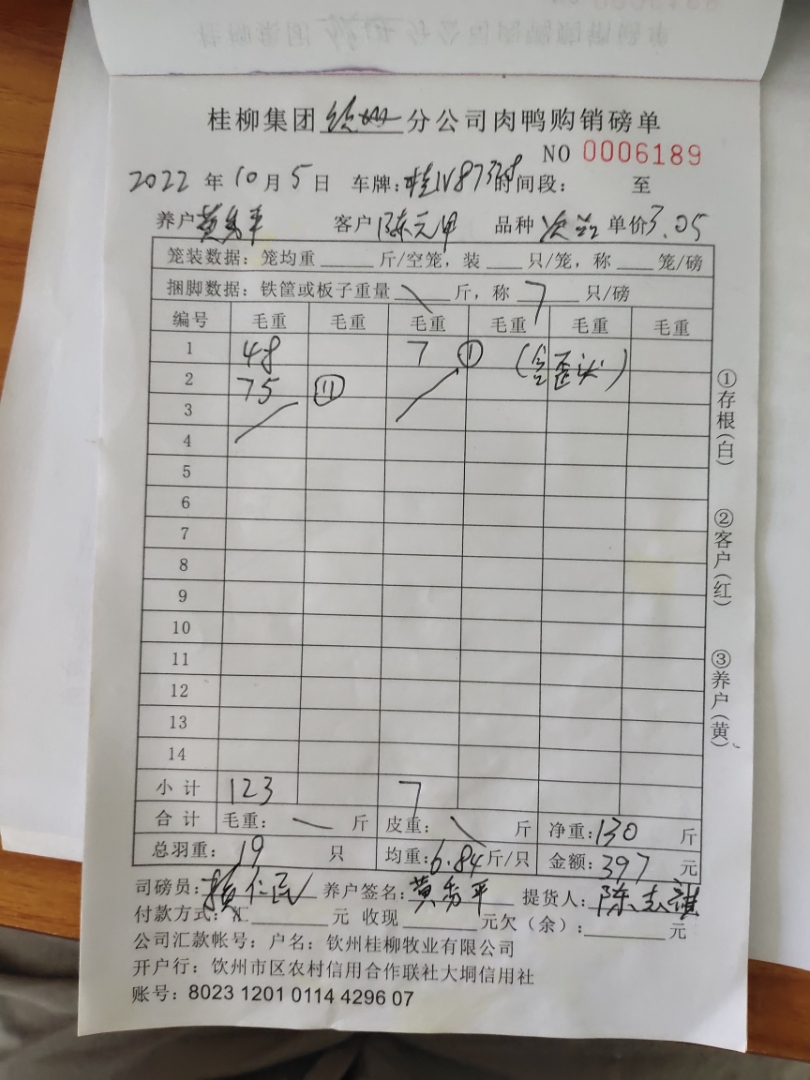 桂柳集团钦州分公司肉鸭购销磅单
NO 0006189
2022 年 10 月 5 日 车牌:桂N873 时间段: 至
养户 黄秀平 客户 陈元甲 品种 次品 单价 3.05
笼装数据: 笼均重 斤/空笼, 装 只/笼, 称 笼/磅
捆脚数据: 铁筐或板子重量 \ 斤, 称 7 只/磅
编号 毛重 毛重 毛重 毛重 毛重 毛重
1 48 7 ① (含歪头)
2 75
3
4
5
6
7
8
9
10
11
12
13
14
小计 123 7
合计 毛重: \ 斤 皮重: \ 斤 净重: 130 斤
总羽重: 19 只 均重: 6.84 斤/只 金额: 397 元
司磅员: 赖仁民 养户签名: 黄秀平 提货人: 陈志
付款方式: 汇 元 收现 元欠(余): 元
公司汇款帐号: 户名: 钦州桂柳牧业有限公司
开户行: 钦州市区农村信用合作联社大垌信用社
账号: 8023 1201 0114 4296 07
①存根(白)
②客户(红)
③养户(黄)